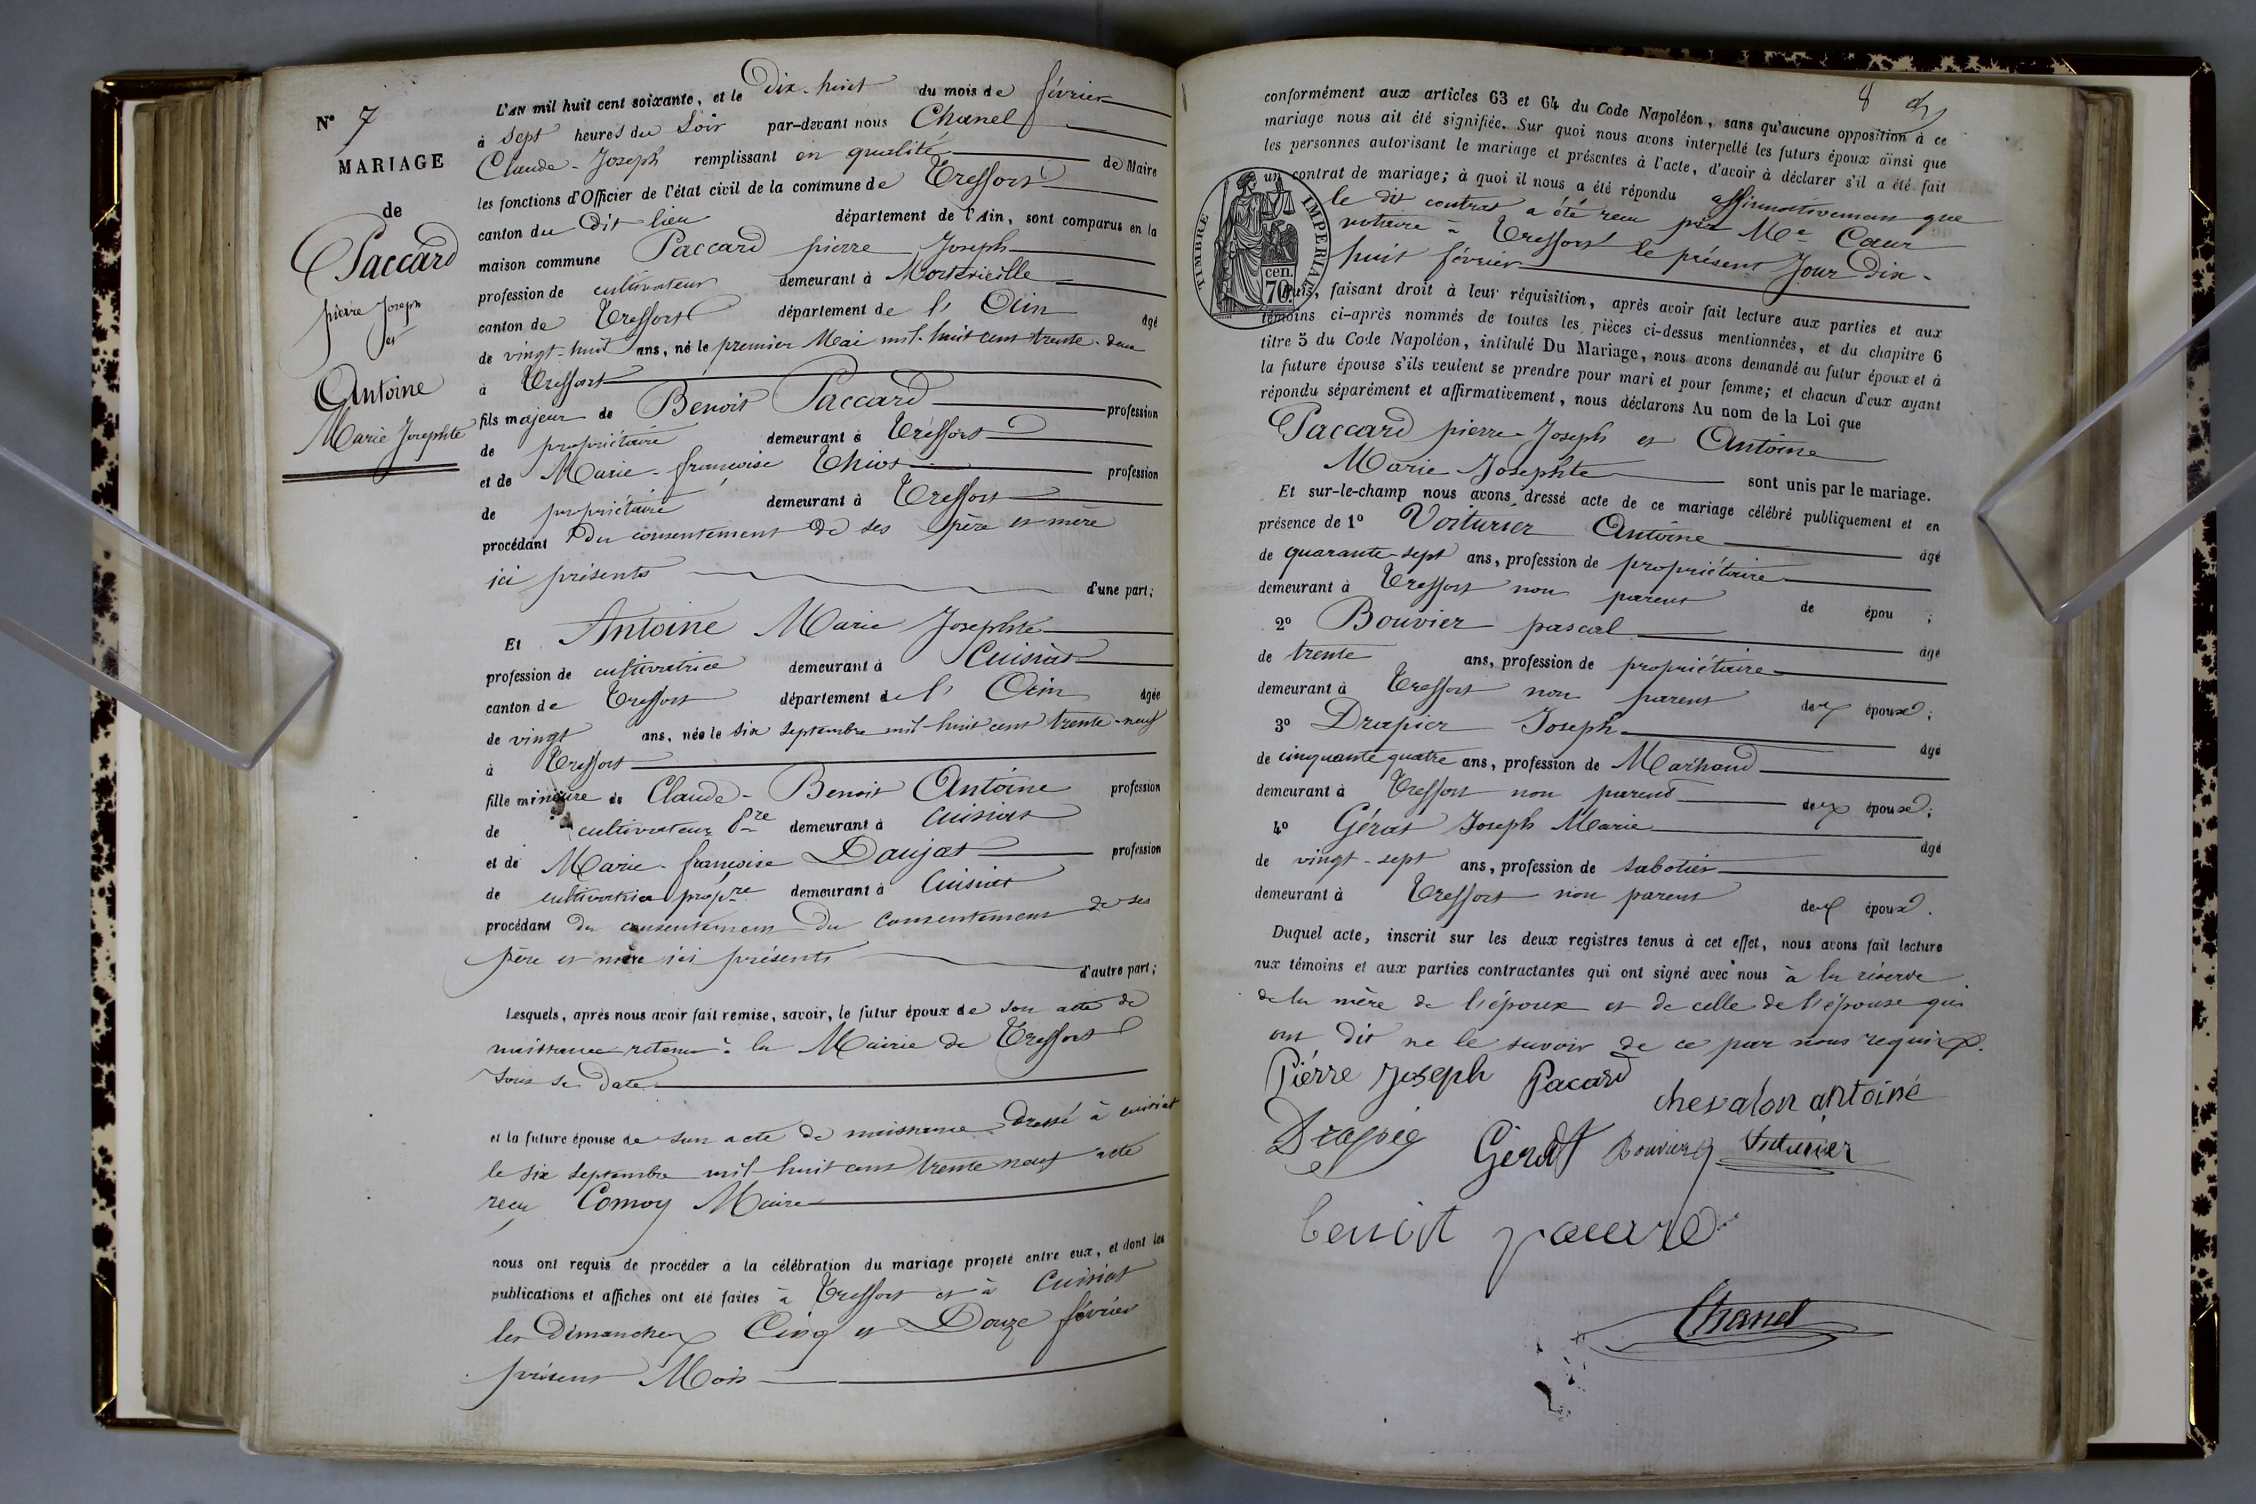 N° 7
MARIAGE
de
Paccard
pierre Joseph
et
Antoine
Marie Josephte
L'AN mil huit cent soixante, et le Dix-huit du mois de février
à sept heures du Soir par-devant nous Chanel
Claude-Joseph remplissant en qualité de Maire
les fonctions d'Officier de l'état civil de la commune de Treffort
canton du dit lieu département de l'Ain, sont comparus en la
maison commune Paccard pierre Joseph
profession de cultivateur demeurant à
canton de Treffort département de l'Ain âgé
de vingt-huit ans, né le premier Mai mil-huit cent trente-deux
à Treffort
fils majeur de Benoit Paccard profession
de propriétaire demeurant à Treffort
et de Marie-françoise profession
de propriétaire demeurant à Treffort
procédant du consentement de ses père et mère
ici présents d'une part;
Et Antoine Marie Josephte
profession de cultivatrice demeurant à Cuisiat
canton de Treffort département de l'Ain âgée
de vingt ans, née le six septembre mil-huit cent trente-neuf
à Treffort
fille mineure de Claude-Benoit Antoine profession
de cultivateur demeurant à Cuisiat
et de Marie-françoise Daujat profession
de cultivatrice prop.re demeurant à Cuisiat
procédant du consentement du consentement de ses
père et mère ici présents d'autre part;
Lesquels, après nous avoir fait remise, savoir, le futur époux de son acte de
naissance retenu à la Mairie de Treffort
sous sa date
et la future épouse de son acte de naissance dressé à cuisiat
le six septembre mil-huit cent trente neuf acte
reçu Comoy Maire
nous ont requis de procéder à la célébration du mariage projeté entre eux, et dont les
publications et affiches ont été faites à Treffort et à Cuisiat
les Dimanches Cinq et Douze février
présent Mois
8
conformément aux articles 63 et 64 du Code Napoléon, sans qu'aucune opposition à ce
mariage nous ait été signifiée. Sur quoi nous avons interpellé les futurs époux ainsi que
les personnes autorisant le mariage et présentes à l'acte, d'avoir à déclarer s'il a été fait
un contrat de mariage; à quoi il nous a été répondu affirmativement que
le dit contrat a été reçu par Me Cœur
notaire à Treffort le présent Jour Dix-
huit février
TIMBRE IMPERIAL
cen.
70
Puis, faisant droit à leur réquisition, après avoir fait lecture aux parties et aux
témoins ci-après nommés de toutes les pièces ci-dessus mentionnées, et du chapitre 6
titre 5 du Code Napoléon, intitulé Du Mariage, nous avons demandé au futur époux et à
la future épouse s'ils veulent se prendre pour mari et pour femme; et chacun d'eux ayant
répondu séparément et affirmativement, nous déclarons Au nom de la Loi que
Paccard pierre-Joseph et Antoine
Marie Josephte sont unis par le mariage.
Et sur-le-champ nous avons dressé acte de ce mariage célébré publiquement et en
présence de 1° Voiturier Antoine âgé
de quarante-sept ans, profession de propriétaire
demeurant à Treffort non parent de épou ;
2° Bouvier pascal âgé
de trente ans, profession de propriétaire
demeurant à Treffort non parent des époux;
3° Drapier Joseph âgé
de cinquante quatre ans, profession de Marchand
demeurant à Treffort non parent des époux;
4° Gérat Joseph Marie âgé
de vingt-sept ans, profession de sabotier
demeurant à Treffort non parent des époux.
Duquel acte, inscrit sur les deux registres tenus à cet effet, nous avons fait lecture
aux témoins et aux parties contractantes qui ont signé avec nous à la réserve
de la mère de l'époux et de celle de l'épouse qui
ont dit ne le savoir de ce par nous requis.
Piérre Joseph Pacard
chevalon antoine
Drapie Gérat Bouvier Voiturier
benoit pacard
Chanel